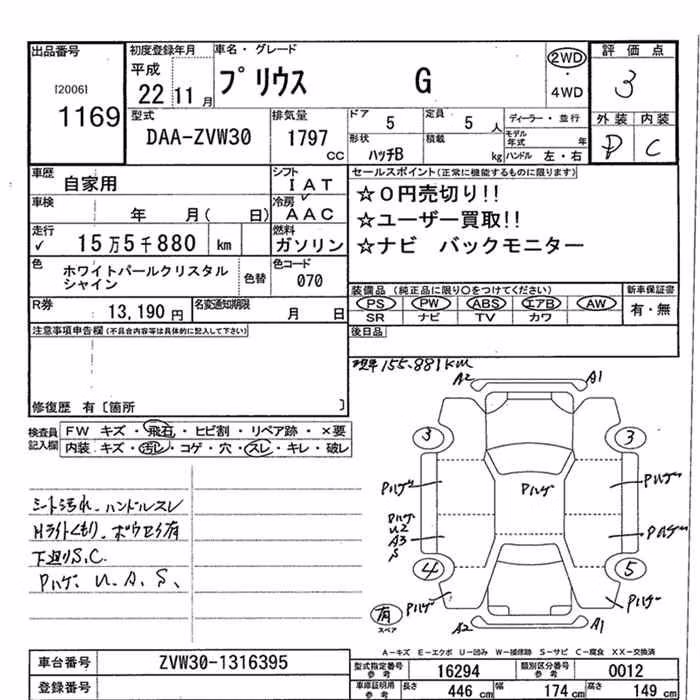 出品番号 初度登録年月 車名・グレード 評価点
[2006]
1169
平成
22 11月
プリウス G
2WD
・
4WD
3
型式
DAA-ZVW30
排気量
1797
cc
ドア 5 定員 5 人
形状 ハッチB 積載 kg
ディーラー・並行
モデル年式 年
ハンドル 左・右
外装 内装
D C
車歴 自家用
シフト
IAT
車検 年 月( 日)
冷房
AAC
走行 ✓ 15万5千880 km
燃料
ガソリン
色
ホワイトパールクリスタル
シャイン
色替
色コード
070
R券 13,190円
名変通知期限 月 日
セールスポイント(正常に機能するものに限ります)
☆0円売切り!!
☆ユーザー買取!!
☆ナビ バックモニター
装備品 (純正品に限り○をつけてください)
新車保証書
PS PW ABS エアB AW
SR ナビ TV カワ
有・無
後日品
注意事項申告欄(不具合内容等は具体的に記入して下さい)
修復歴 有〔箇所 〕
現車155,881KM
検査員
記入欄
FW キズ・飛石・ヒビ割・リペア跡・×要
内装 キズ・汚レ・コゲ・穴・スレ・キレ・破レ
シート汚れ、ハンドルスレ
Hライトくもり、
下廻りS.C.
Pハゲ、U、A、S、
A2 A1
3 3
Pハゲ Pハゲ Pハゲ
Pハゲ
U2
A3
S
Pハゲ
4 5
Pハゲ Pハゲ
有
スペア
A2 A1
A－キズ E－エクボ U－凹み W－補修跡 S－サビ C－腐食 XX－交換済
車台番号 ZVW30-1316395
登録番号
型式指定番号
参考
16294
類別区分番号
参考
0012
車庫証明用
参考
長さ 446 cm 幅 174 cm 高さ 149 cm